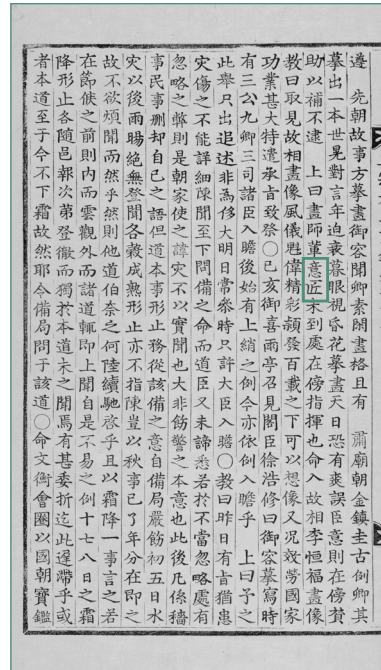 遵　先朝故事方摹畫御容聞卿素閑畫格且有　肅廟朝金鎮圭古例卿其
摹出一本世晃對言年迫衰暮眼視昏花摹畫天日恐有爽誤臣意則在傍贊
助以補不逮　上曰畫師輩意匠未到處在傍指揮也命入故相李恒福畫像
教曰取見故相畫像風儀魁偉精彩頴發百載之下可以想像又況效勞國家
功業甚大特遣承旨致祭○己亥御喜雨亭召見閣臣徐浩修曰御容摹寫時
有三公九卿三司諸臣入瞻後始有上綃之例今亦依例入瞻乎　上曰予之
此舉只出追述非為侈大明日常參時只許大臣入瞻○教曰昨日有旨猶患
灾傷之不能詳細陳聞至下問備之命而道臣又未諦悉若於不當忽略處有
忽略之弊則是朝家使之諱灾不以實聞也大非飭警之本意也此後凡係穡
事民事刪却自己之語但道本事形止務從該備之意自備局嚴飭初五日水
灾以後雨暘絕無登聞各穀成熟形止亦不指陳豈以秋事已了年分在即之
故不欲煩聞而然乎然則他道伯奈之何陸續馳啓乎且以霜降一事言之若
在節候之前則內而雲觀外而諸道輒即上聞自是不易之例十七八日之霜
降形止各隨邑報次第登徹而獨於本道未之聞焉有甚委折迄此遲滯乎或
者本道至于今不下霜故然耶令備局問于該道○命文衡會圈以國朝寶鑑